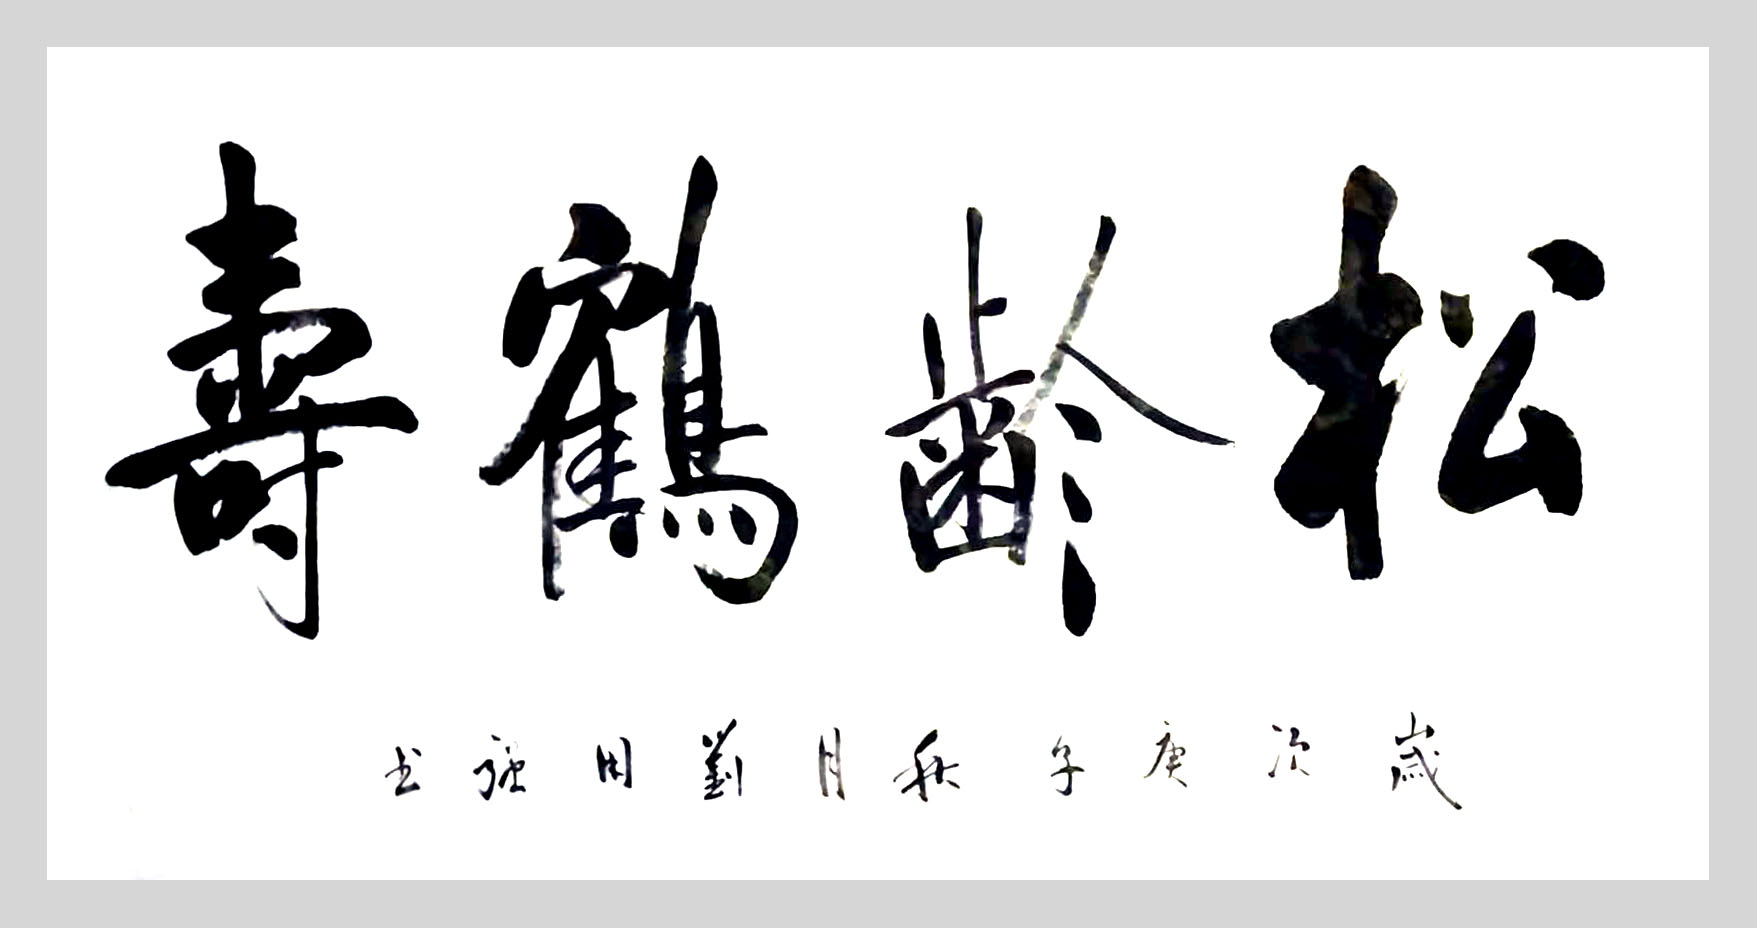 松齡鶴壽
歲次庚子秋月劉用强书